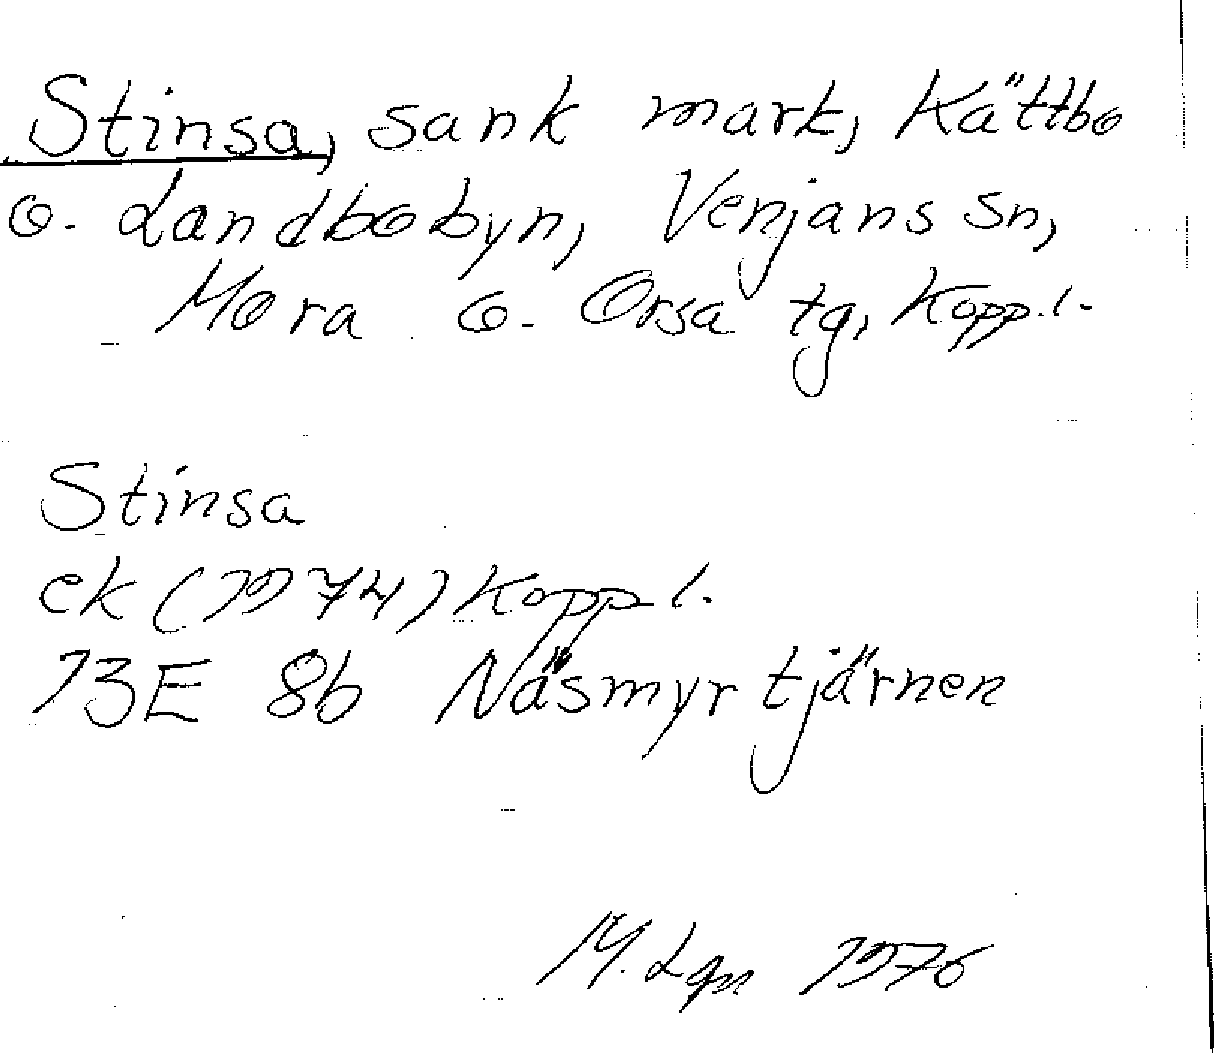 Stinsa, sank mark, Kättbo
o. Landbobyn, Venjans sn,
Mora o. Orsa tg, Kopp.l.
Stinsa
ek (1974) Kopp l.
13E 8b Näsmyrtjärnen
M. Lgn 1976